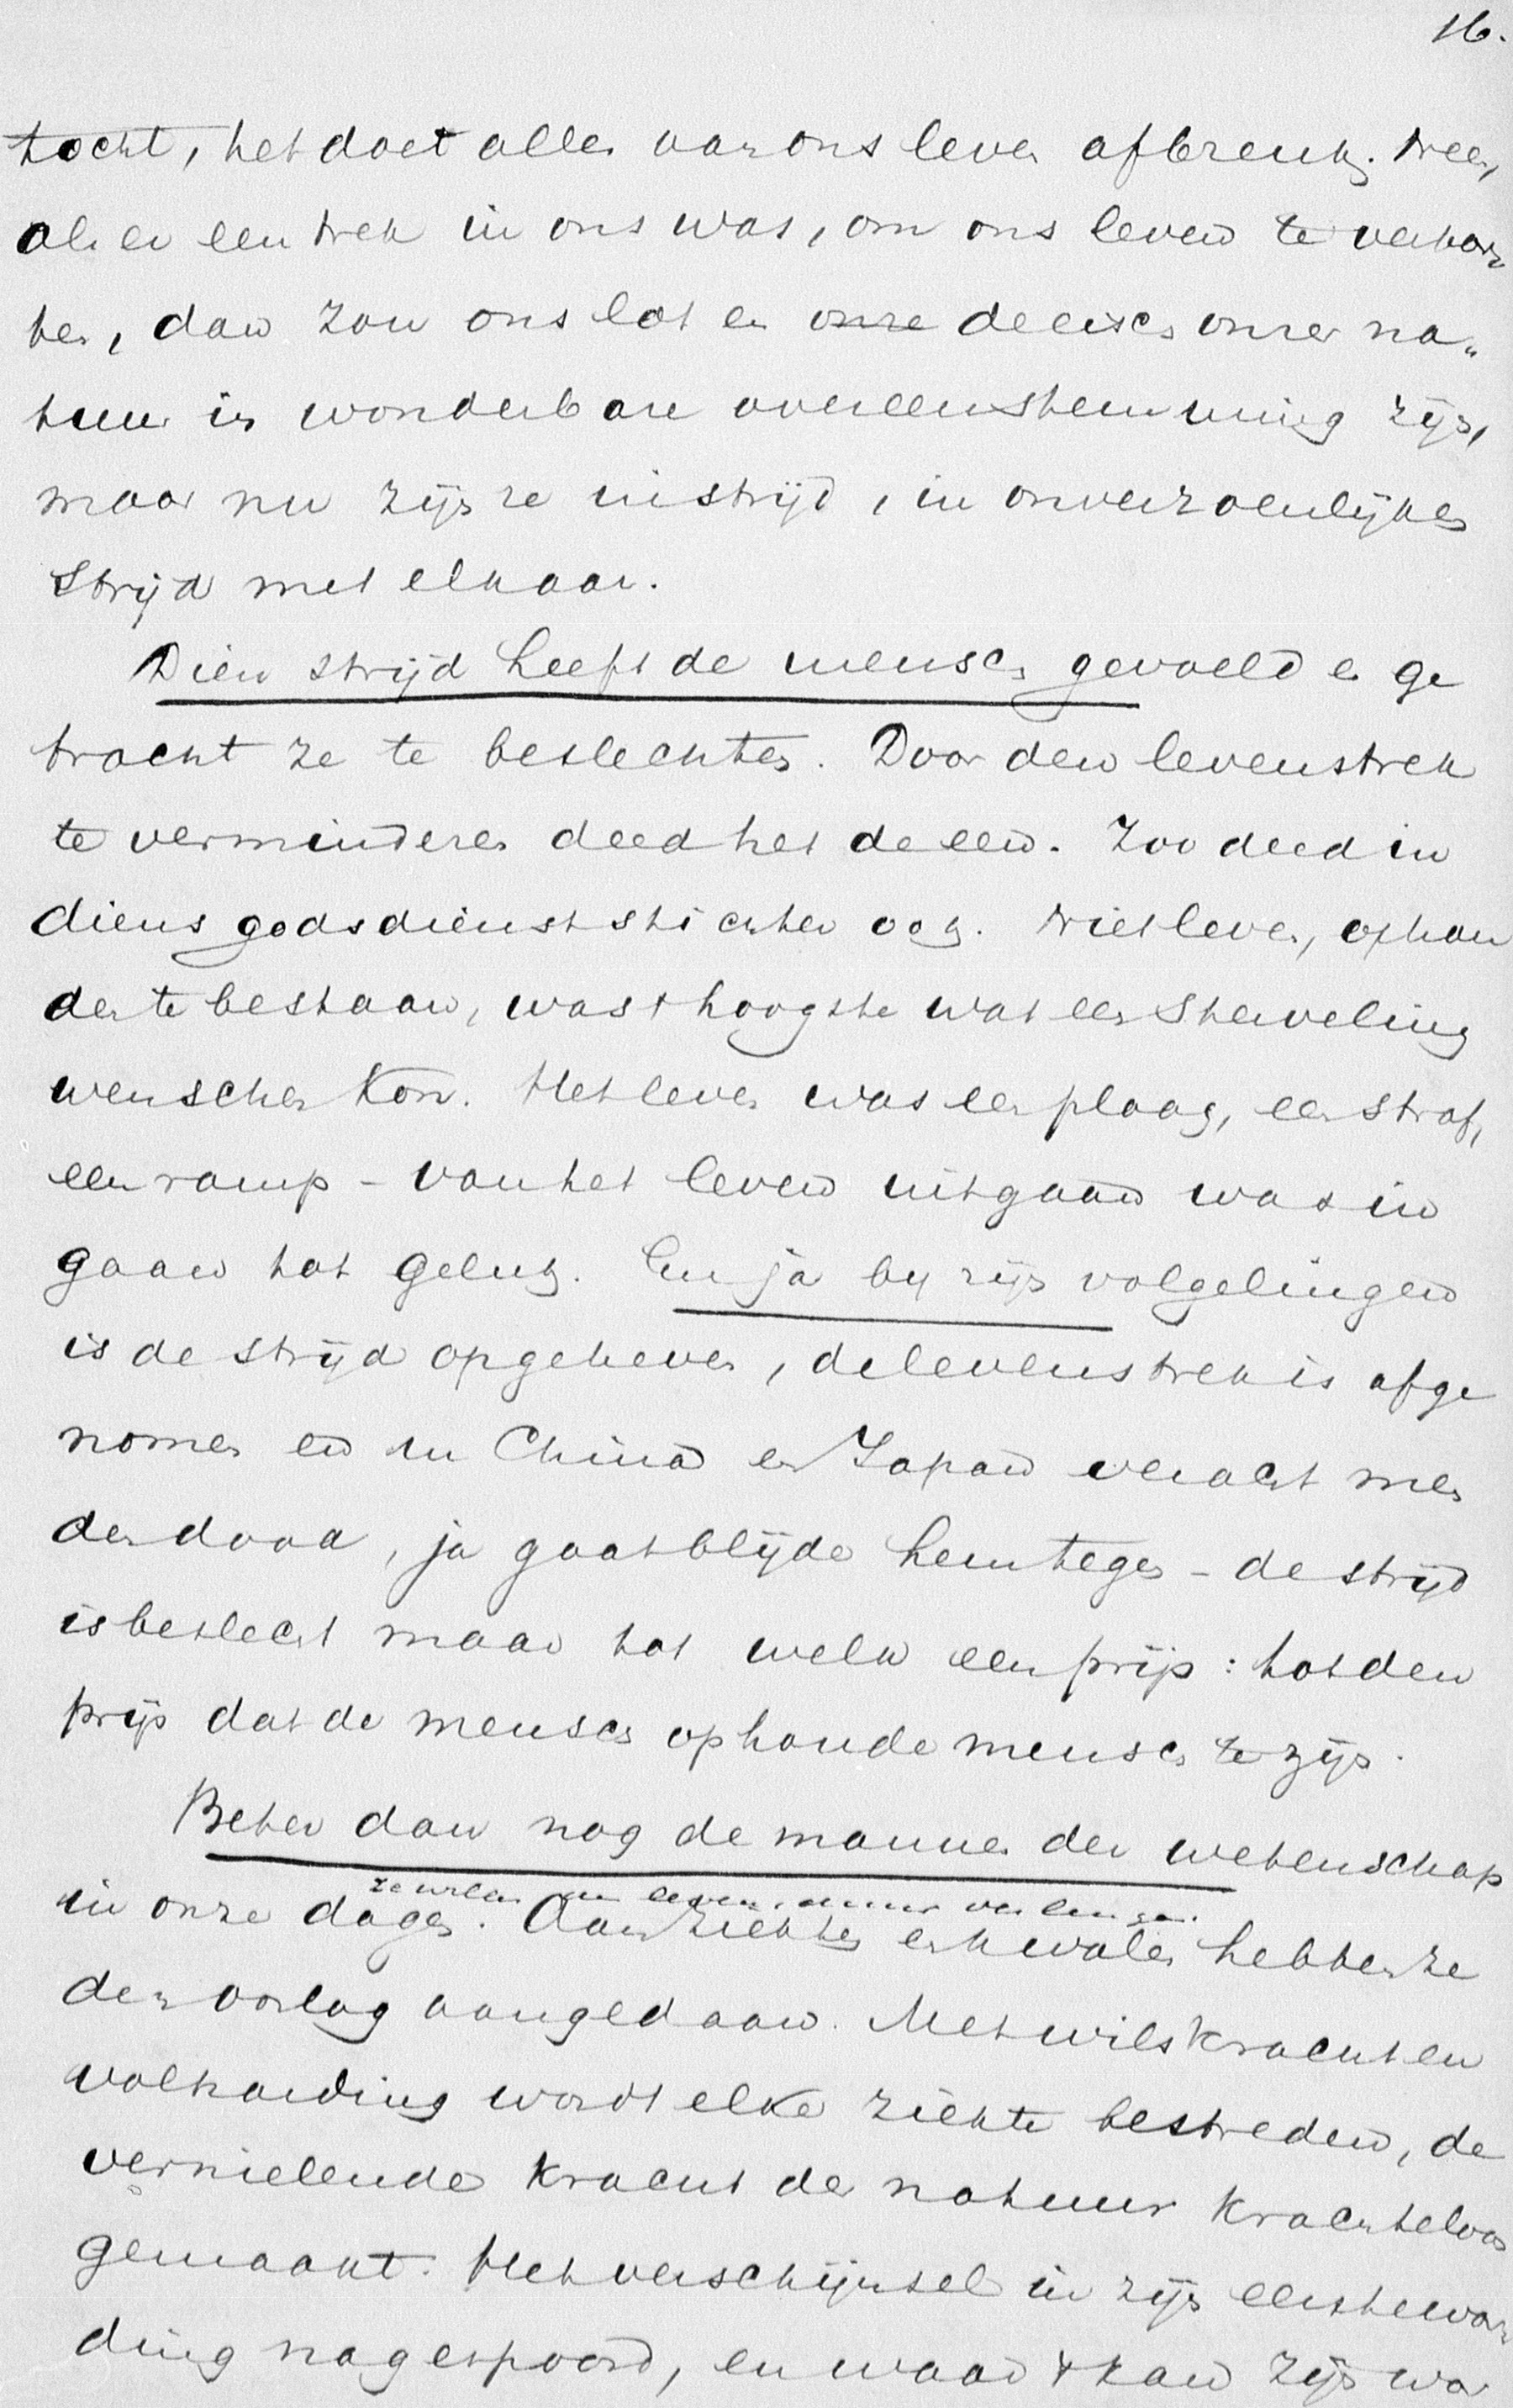 16.
tocht, het doet alles van ons leven afbreuk. Neen,
als er een trek in ons was, om ons leven te verkor
ten, dan zou ons lot en onze de eisch onzer na„
tuur in wonderbare overeenstemming zijn,
maar nu zijn ze in strijd, in onverzoenlijken
strijd met elkaar.
Dien strijd heeft de mensch gevoeld en ge
tracht ze te beslechten. Door den levenstrek
te verminderen deed het de een. Zoo deed in
diens godsdienststichter ook. Niet leven, ophou
den te bestaan, was 't hoogste wat een sterveling
wenschen kon. Het leven was een plaag, een straf,
een ramp - van het leven uitgaan was in
gaan tot geluk. En ja by zijn volgelingen
is de strijd opgeheven, de levenstrek is afge
nomen en in China en Japan veracht men
den dood, ja gaat blijde hem tegen - de strijd
is beslecht maar tot welk een prijs: tot den
prijs dat de mensch ophoude mensch te zijn.
Beter dan nog de mannen der wetenschap
ze willen den levensduur verlengen.
in onze dagen. Aan ziekten en kwalen hebben ze
den oorlog aangedaan. Met wilskracht en
volharding wordt elke ziekte bestreden, de
vernielende kracht der natuur krachteloos
gemaakt. Het verschijnsel in zijn eerste wor
ding nagespoord, en waar 't kan zijn wor